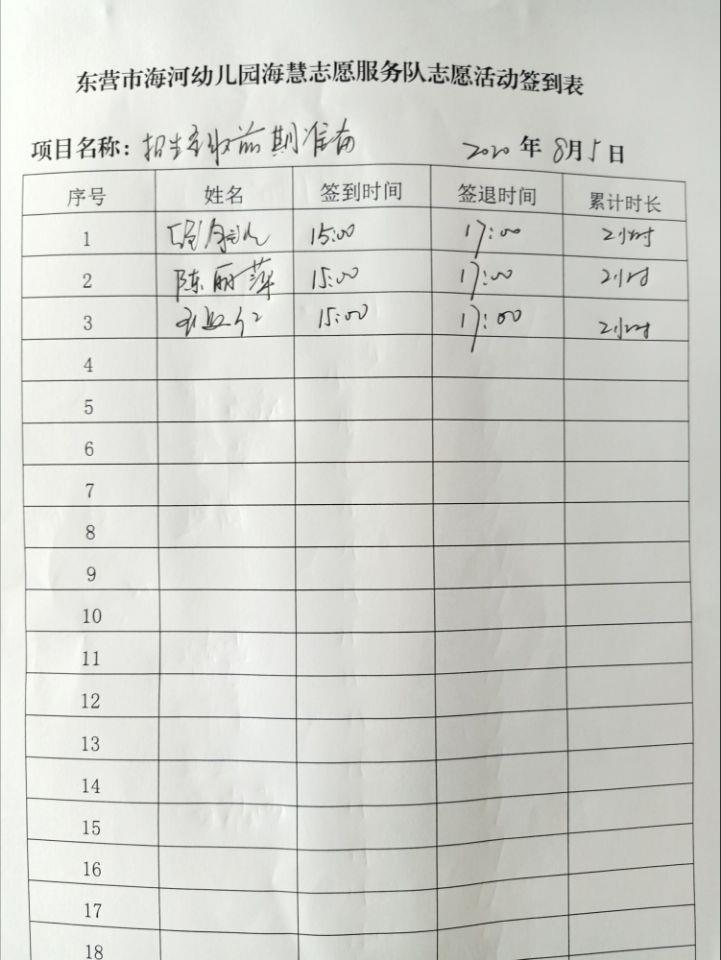 东营市海河幼儿园海慧志愿服务队志愿活动签到表
项目名称：招生 前期准备 2020年8月5日
序号 姓名 签到时间 签退时间 累计时长
1 15:00 17:00 2小时
2 陈丽萍 15:00 17:00 2小时
3 15:00 17:00 2小时
4
5
6
7
8
9
10
11
12
13
14
15
16
17
18